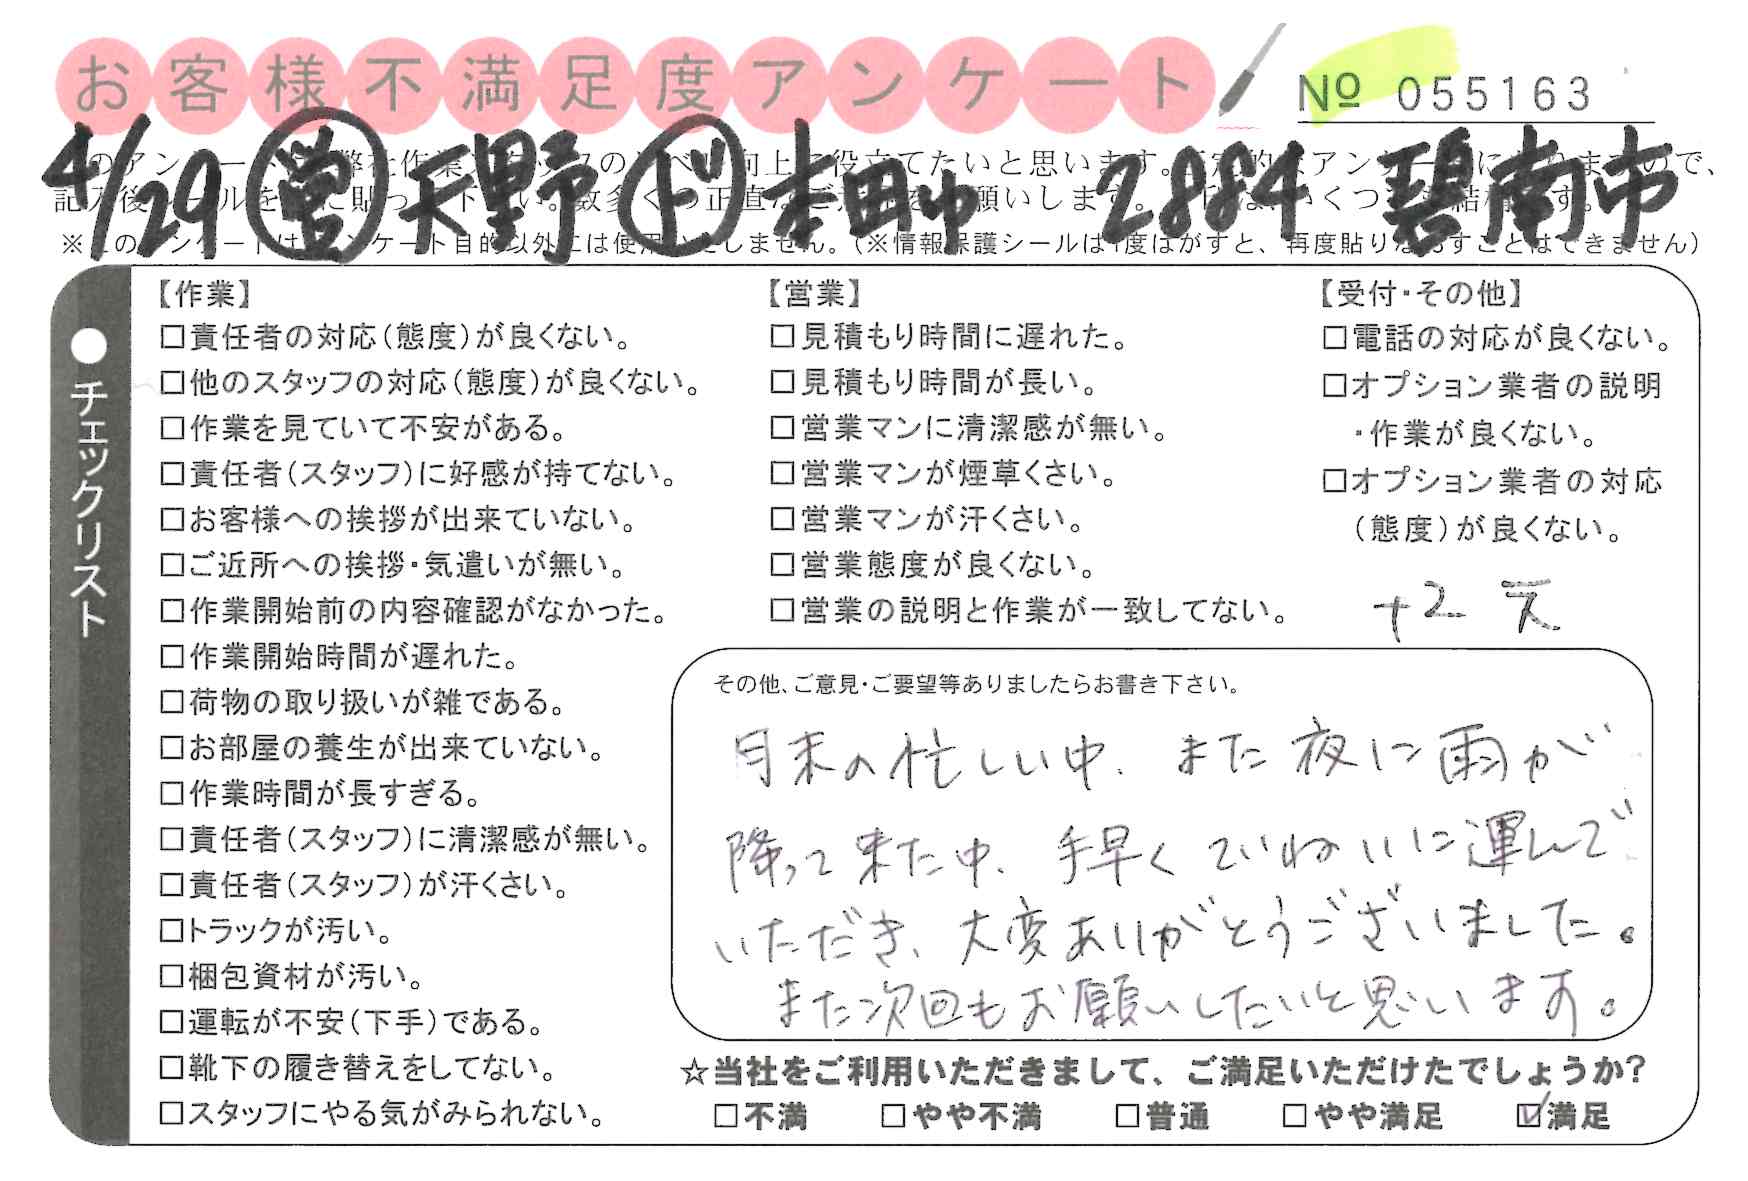 お客様不満足度アンケート
№ 055163
4/29 営 天野 ド 本田中 2884 碧南市
※このアンケートはアンケート目的以外には使用いたしません。(※情報保護シールは1度はがすと、再度貼りなおすことはできません)
●チェックリスト
【作業】
□責任者の対応(態度)が良くない。
□他のスタッフの対応(態度)が良くない。
□作業を見ていて不安がある。
□責任者(スタッフ)に好感が持てない。
□お客様への挨拶が出来ていない。
□ご近所への挨拶・気遣いが無い。
□作業開始前の内容確認がなかった。
□作業開始時間が遅れた。
□荷物の取り扱いが雑である。
□お部屋の養生が出来ていない。
□作業時間が長すぎる。
□責任者(スタッフ)に清潔感が無い。
□責任者(スタッフ)が汗くさい。
□トラックが汚い。
□梱包資材が汚い。
□運転が不安(下手)である。
□靴下の履き替えをしてない。
□スタッフにやる気がみられない。
【営業】
□見積もり時間に遅れた。
□見積もり時間が長い。
□営業マンに清潔感が無い。
□営業マンが煙草くさい。
□営業マンが汗くさい。
□営業態度が良くない。
□営業の説明と作業が一致してない。
【受付・その他】
□電話の対応が良くない。
□オプション業者の説明
・作業が良くない。
□オプション業者の対応
(態度)が良くない。
+2
その他、ご意見・ご要望等ありましたらお書き下さい。
月末の忙しい中、また夜に雨が
降って来た中、手早くていねいに運んで
いただき、大変ありがとうございました。
また次回もお願いしたいと思います。
☆当社をご利用いただきまして、ご満足いただけたでしょうか?
□不満 □やや不満 □普通 □やや満足 ☑満足